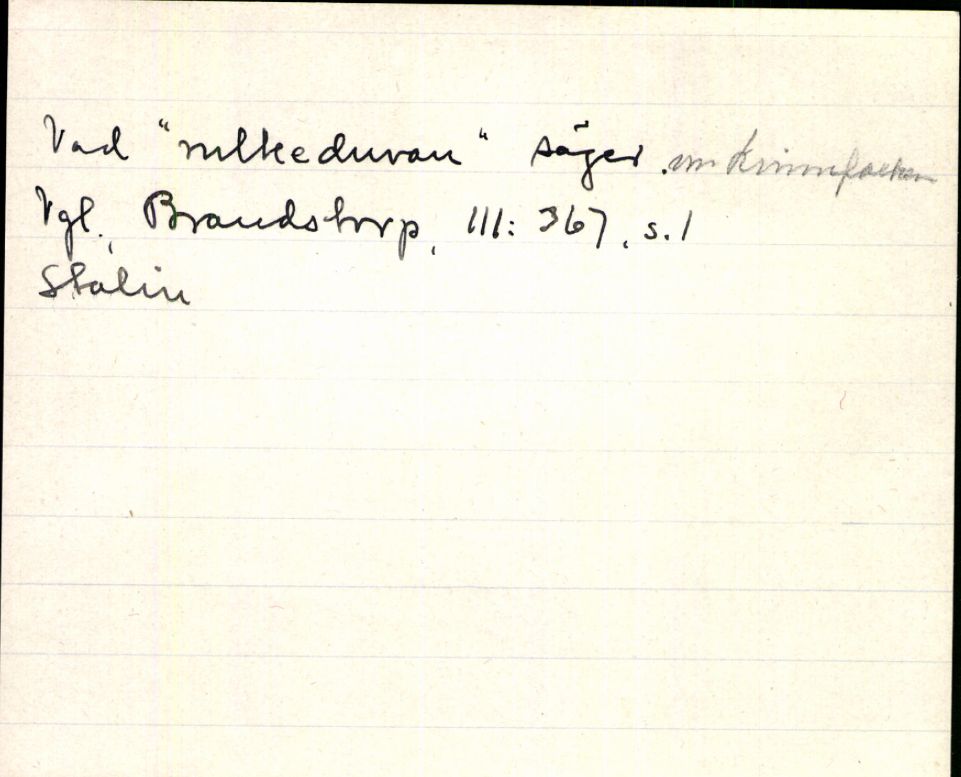 Vad "rulkeduvan" säger. om kvinnfolken
Vgl., Brandstorp, III: 367, s. 1
Stalin